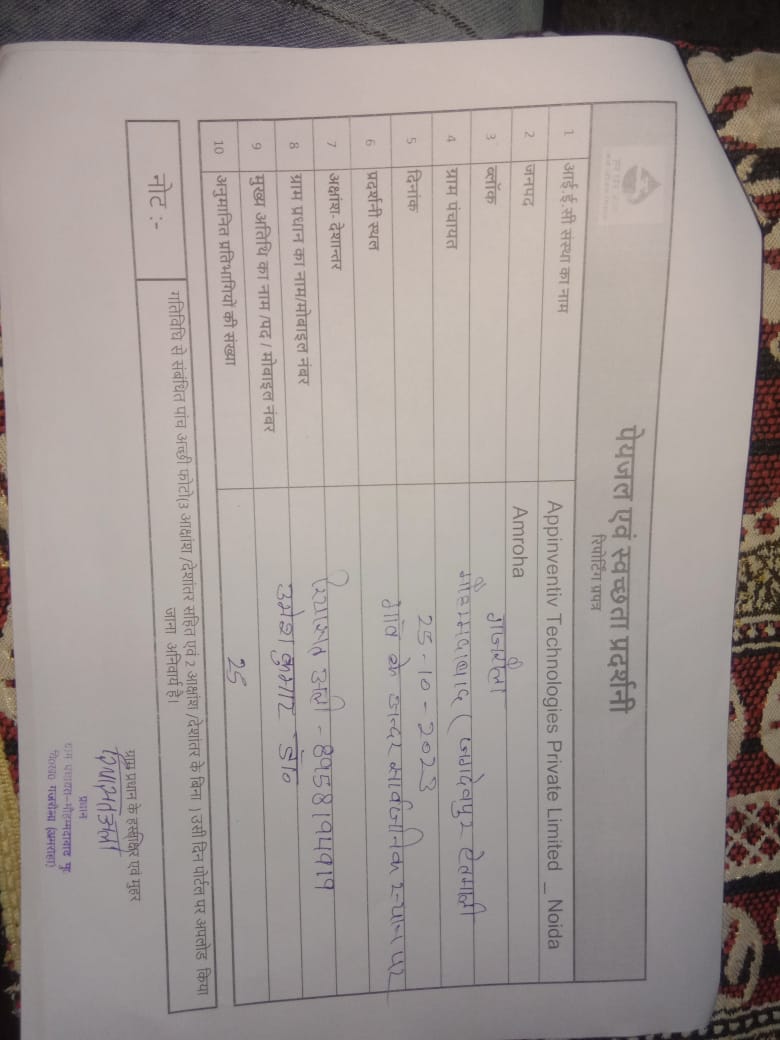 पेयजल एवं स्वच्छता प्रदर्शनी
रिपोर्टिंग प्रपत्र
1 आई.ई.सी संस्था का नाम Appinventiv Technologies Private Limited _ Noida
2 जनपद Amroha
3 ब्लॉक गजरौला
4 ग्राम पंचायत
5 दिनांक 25-10-2023
6 प्रदर्शनी स्थल गाँव के अन्दर सार्वजनिक स्थान पर
7 अक्षांश- देशान्तर
8 ग्राम प्रधान का नाम/मोबाइल नंबर अली - 8958194919
9 मुख्य अतिथि का नाम /पद / मोबाइल नंबर उमेश कुमार
10 अनुमानित प्रतिभागियों की संख्या 25
नोट :- गतिविधि से संबंधित पांच अच्छी फोटो(3 आक्षांश /देशांतर सहित एवं 2 आक्षांश /देशांतर के बिना ) उसी दिन पोर्टल पर अपलोड किया
जाना अनिवार्य है।
ग्राम प्रधान के हस्ताक्षर एवं मुहर
प्रधान
ग्राम पंचायत-मौहम्मदाबाद
गजरौला (अमरोहा)